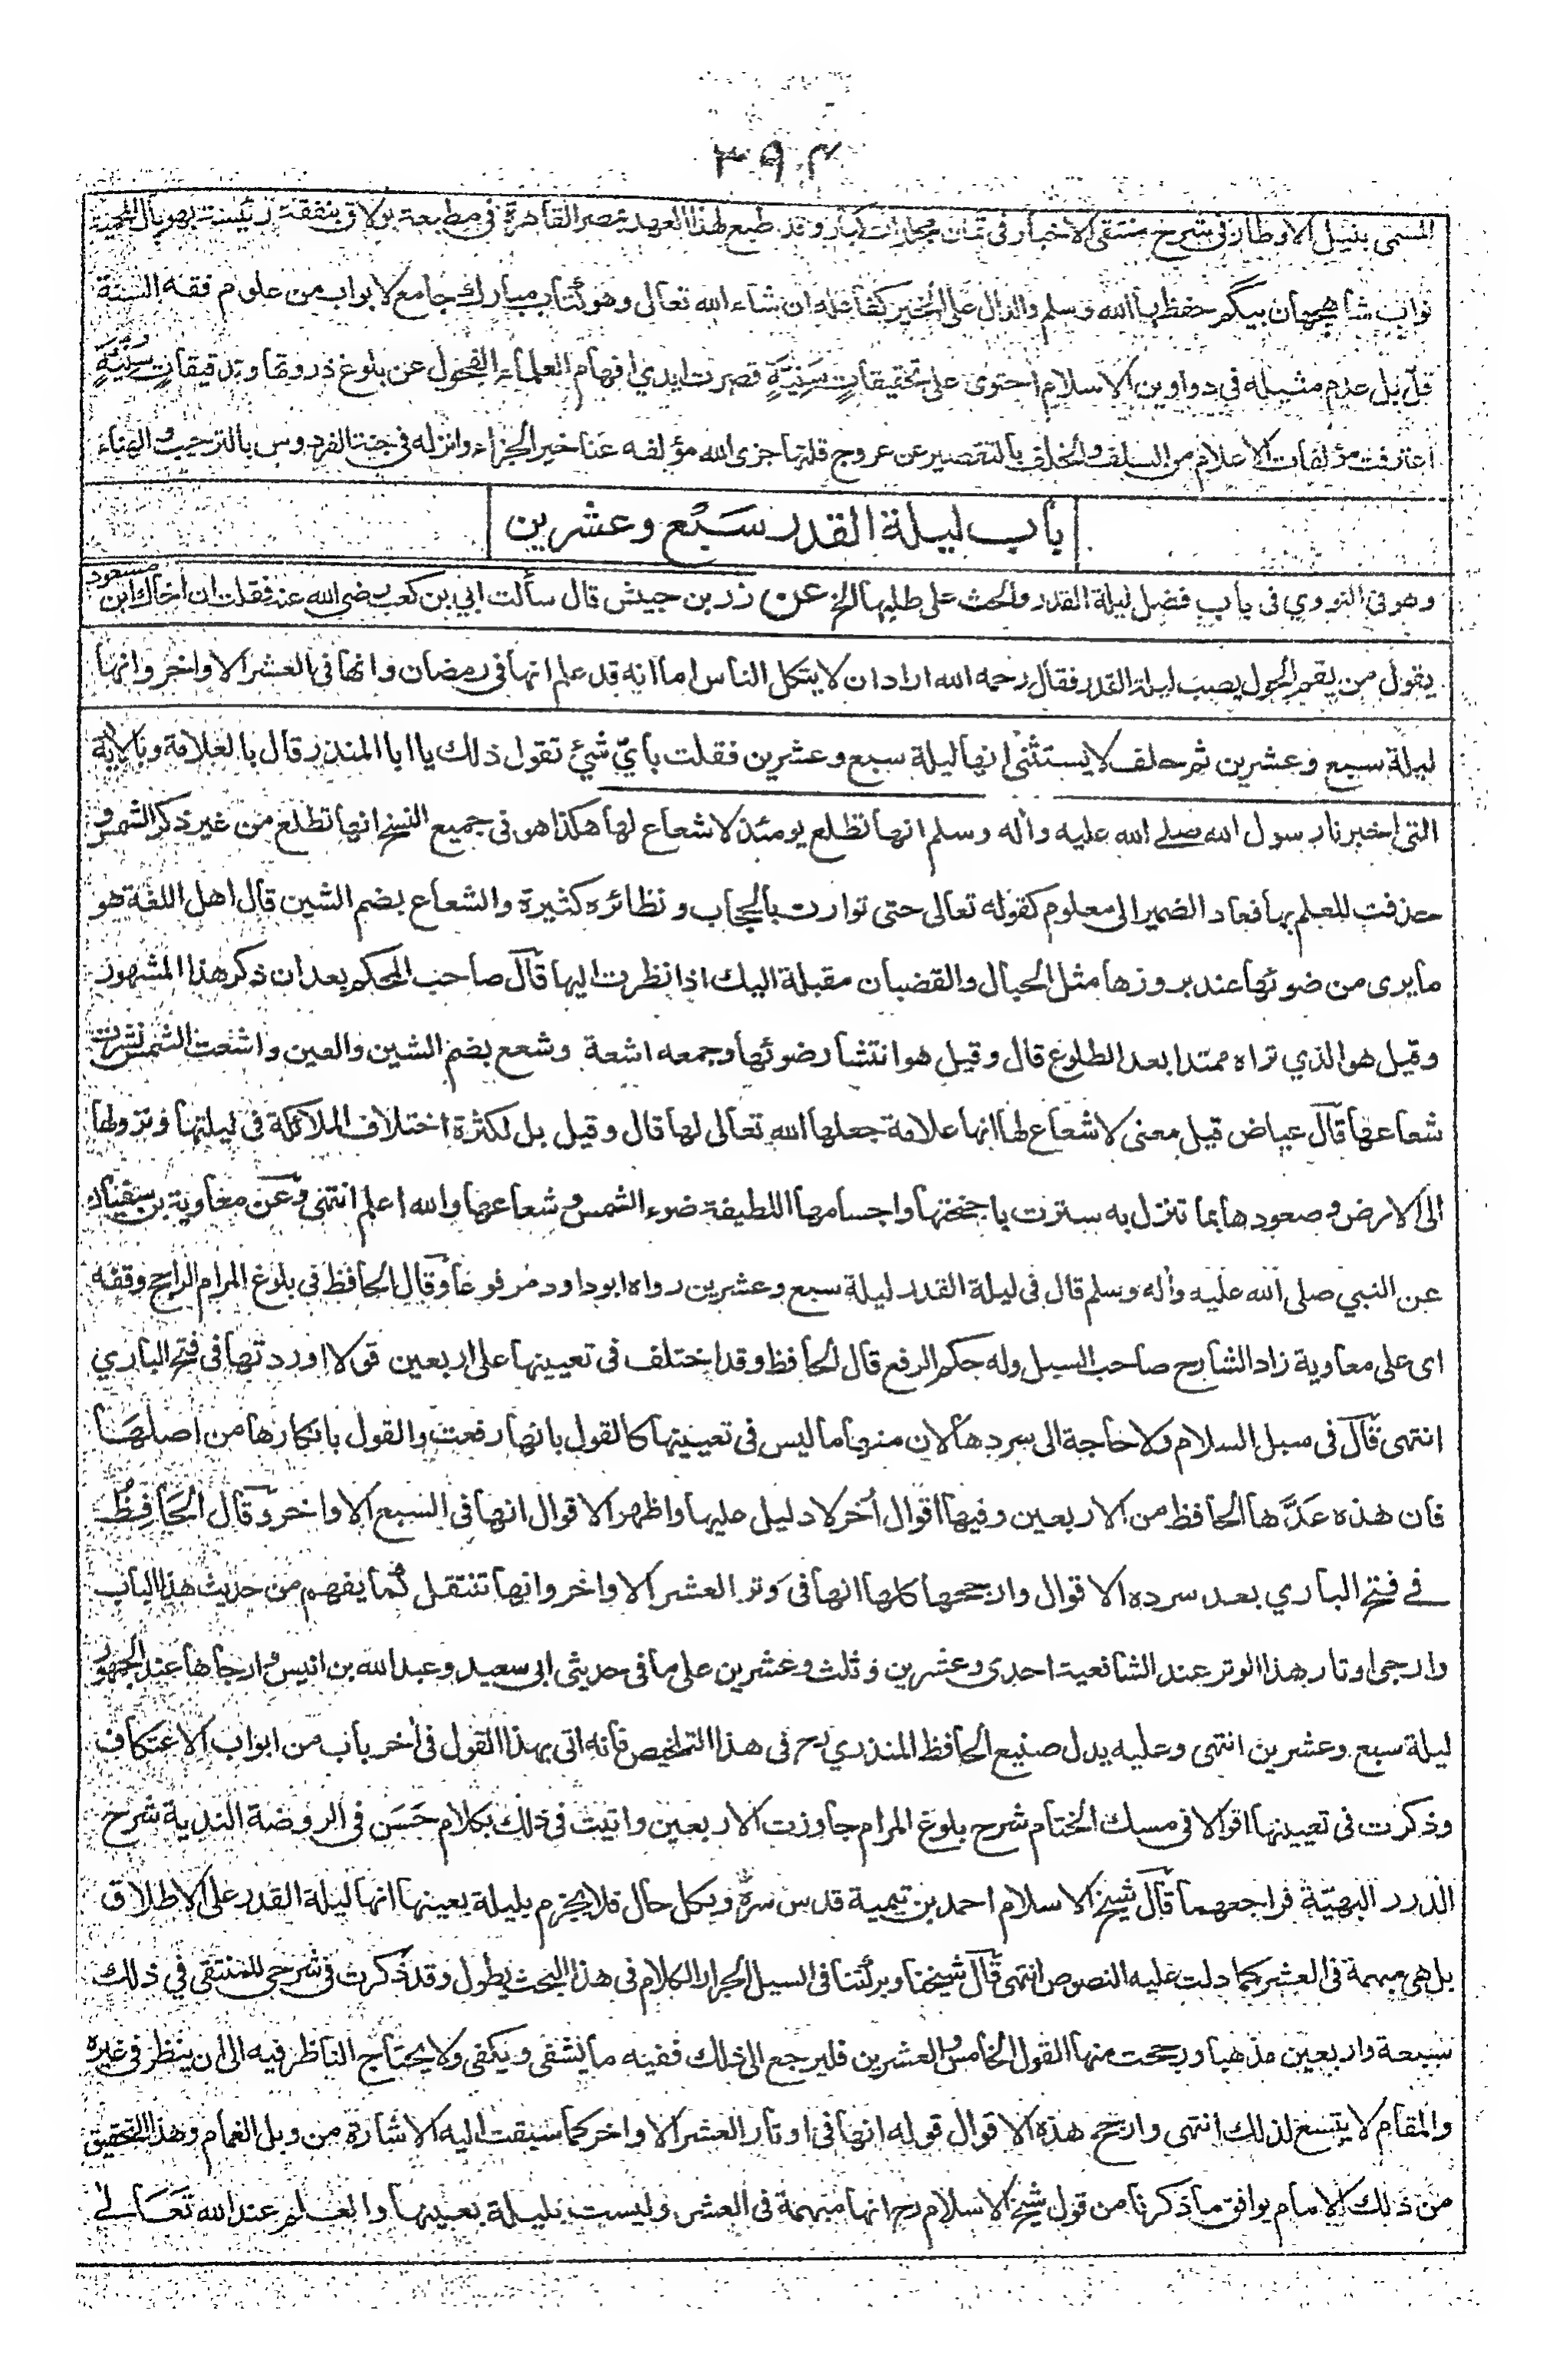 ٣٩٢
المسمى بنيل الاوطار فى شرح منتقى الاخبار فى ثمان مجلدات كبار وقد طبع لهذا العهد بمصر القاهرة فى مطبعة بولاق بنفقة رئيسة بهوپال المحمية
نواب شاهجهان بيگم حفظها الله وسلم والدال على الخير كفاعله ان شاء الله تعالى وهو كتاب مبارك جامع لابواب من علوم فقه السنة
قل بل عدم مثيله فى دواوين الاسلام احتوى على تحقيقات سَنِيَّةٍ قصرت ايدي افهام العلماء الفحول عن بلوغ ذروتها وتدقيقات سُنِّيَّةٍ
اعترفت مؤلفات الاعلام من السلف والخلف بالتقصير عن عروج قلتها جزى الله مؤلفه عنا خير الجزاء وانزله فى جنة الفردوس بالترحيب والهناء
باب ليلة القدر سَبْع وعشرين
وهو في النووي فى باب فضل ليلة القدر والحث على طلبها الخ عن زر بن حبيش قال سألت ابي بن كعب رضى الله عنه فقلت ان اخاك ابن مسعود
يقول من يقم الحول يصب ليلة القدر فقال رحمه الله اراد ان لا يتكل الناس اما انه قد علم انها فى رمضان وانها فى العشر الاواخر وانها
ليلة سبع وعشرين ثم حلف لا يستثنى انها ليلة سبع وعشرين فقلت بأيّ شئ تقول ذلك يا ابا المنذر قال بالعلامة وبالاية
التى اخبرنا رسول الله صلے الله عليه وأله وسلم انها تطلع يومئذ لا شعاع لها هكذا هو فى جميع النسخ انها تطلع من غير ذكر الشمس و
حذفت للعلم بها فعاد الضمير الى معلوم كقوله تعالى حتى توارت بالحجاب ونظائره كثيرة والشعاع بضم الشين قال اهل اللغة هو
ما يرى من ضوئها عند بروزها مثل الحبال والقضبان مقبلة اليك اذا نظرت اليها قال صاحب المحكم بعد ان ذكر هذا المشهور
وقيل هو الذي تراه ممتدا بعد الطلوع قال وقيل هو انتشار ضوئها وجمعه اشعة وشعع بضم الشين والعين واشعت الشمس نشرت
شعاعها قال عياض قيل معنى لا شعاع لها انها علامة جعلها الله تعالى لها قال وقيل بل لكثرة اختلاف الملائكة فى ليلتها ونزولها
الى الارض وصعودها بما تنزل به سترت باجنحتها واجسامها اللطيفة ضوء الشمس وشعاعها والله اعلم انتهى وعن معاوية بن سفيان
عن النبي صلى الله عليه وأله وسلم قال فى ليلة القدر ليلة سبع وعشرين رواه ابو داود مرفوعا وقال الحافظ فى بلوغ المرام الراجح وقفه
اى على معاوية زاد الشارح صاحب السبل وله حكم الرفع قال الحافظ وقد اختلف فى تعيينها على اربعين قولا اوردتها فى فتح الباري
انتهى قال فى سبل السلام ولا حاجة الى سردها لان منها ما ليس فى تعيينها كالقول بانها رفعت والقول بانكارها من اصلها
فان هذه عَدَّها الحافظ من الاربعين وفيها اقوال أخر لا دليل عليها واظهر الاقوال انها فى السبع الاواخر وقال الحَافِظُ
فے فتح الباري بعد سرده الاقوال وارجحها كلها انها فى وتر العشر الاواخر وانها تنتقل كما يفهم من حديث هذا الباب
وارجى اوتار هذا الوتر عند الشافعية احدى وعشرين وثلث وعشرين على ما فى حديثى ابى سعيد وعبد الله بن انيس وارجاها عند الجمهور
ليلة سبع وعشرين انتهى وعليه يدل صنيع الحافظ المنذري رح فى هذا التلخيص فانه اتى بهذا القول فى أخر باب من ابواب الاعتكاف
وذكرت فى تعيينها اقوالا فى مسك الختام شرح بلوغ المرام جاوزت الاربعين واتيت فى ذلك بكلام حَسَن فى الروضة الندية شرح
الدرر البهيّة فراجعهما قال شيخ الاسلام احمد بن تيمية قدس سره وبكل حال فلا يجزم بليلة بعينها انها ليلة القدر على الاطلاق
بل هى مبهمة فى العشر كما دلت عليه النصوص انتهى قال شيخنا وبركتنا فى السيل الجرار الكلام فى هذا البحث يطول وقد ذكرت فى شرحى للمنتقى في ذلك
سبعة واربعين مذهبا ورجحت منها القول الخامس والعشرين فليرجع الى ذلك ففيه ما يشفى ويكفى ولا يحتاج الناظر فيه الى ان ينظر فى غيره
والمقام لا يتسع لذلك انتهى وارجح هذه الاقوال قوله انها فى اوتار العشر الاواخر كما سبقت اليه الاشارة من وبل الغمام وهذا التحقيق
من ذلك الامام يوافق ما ذكرنا من قول شيخ الاسلام رح انها مبهمة فى العشر وليست بليلة بعينها والعلم عند الله تَعَالےٰ